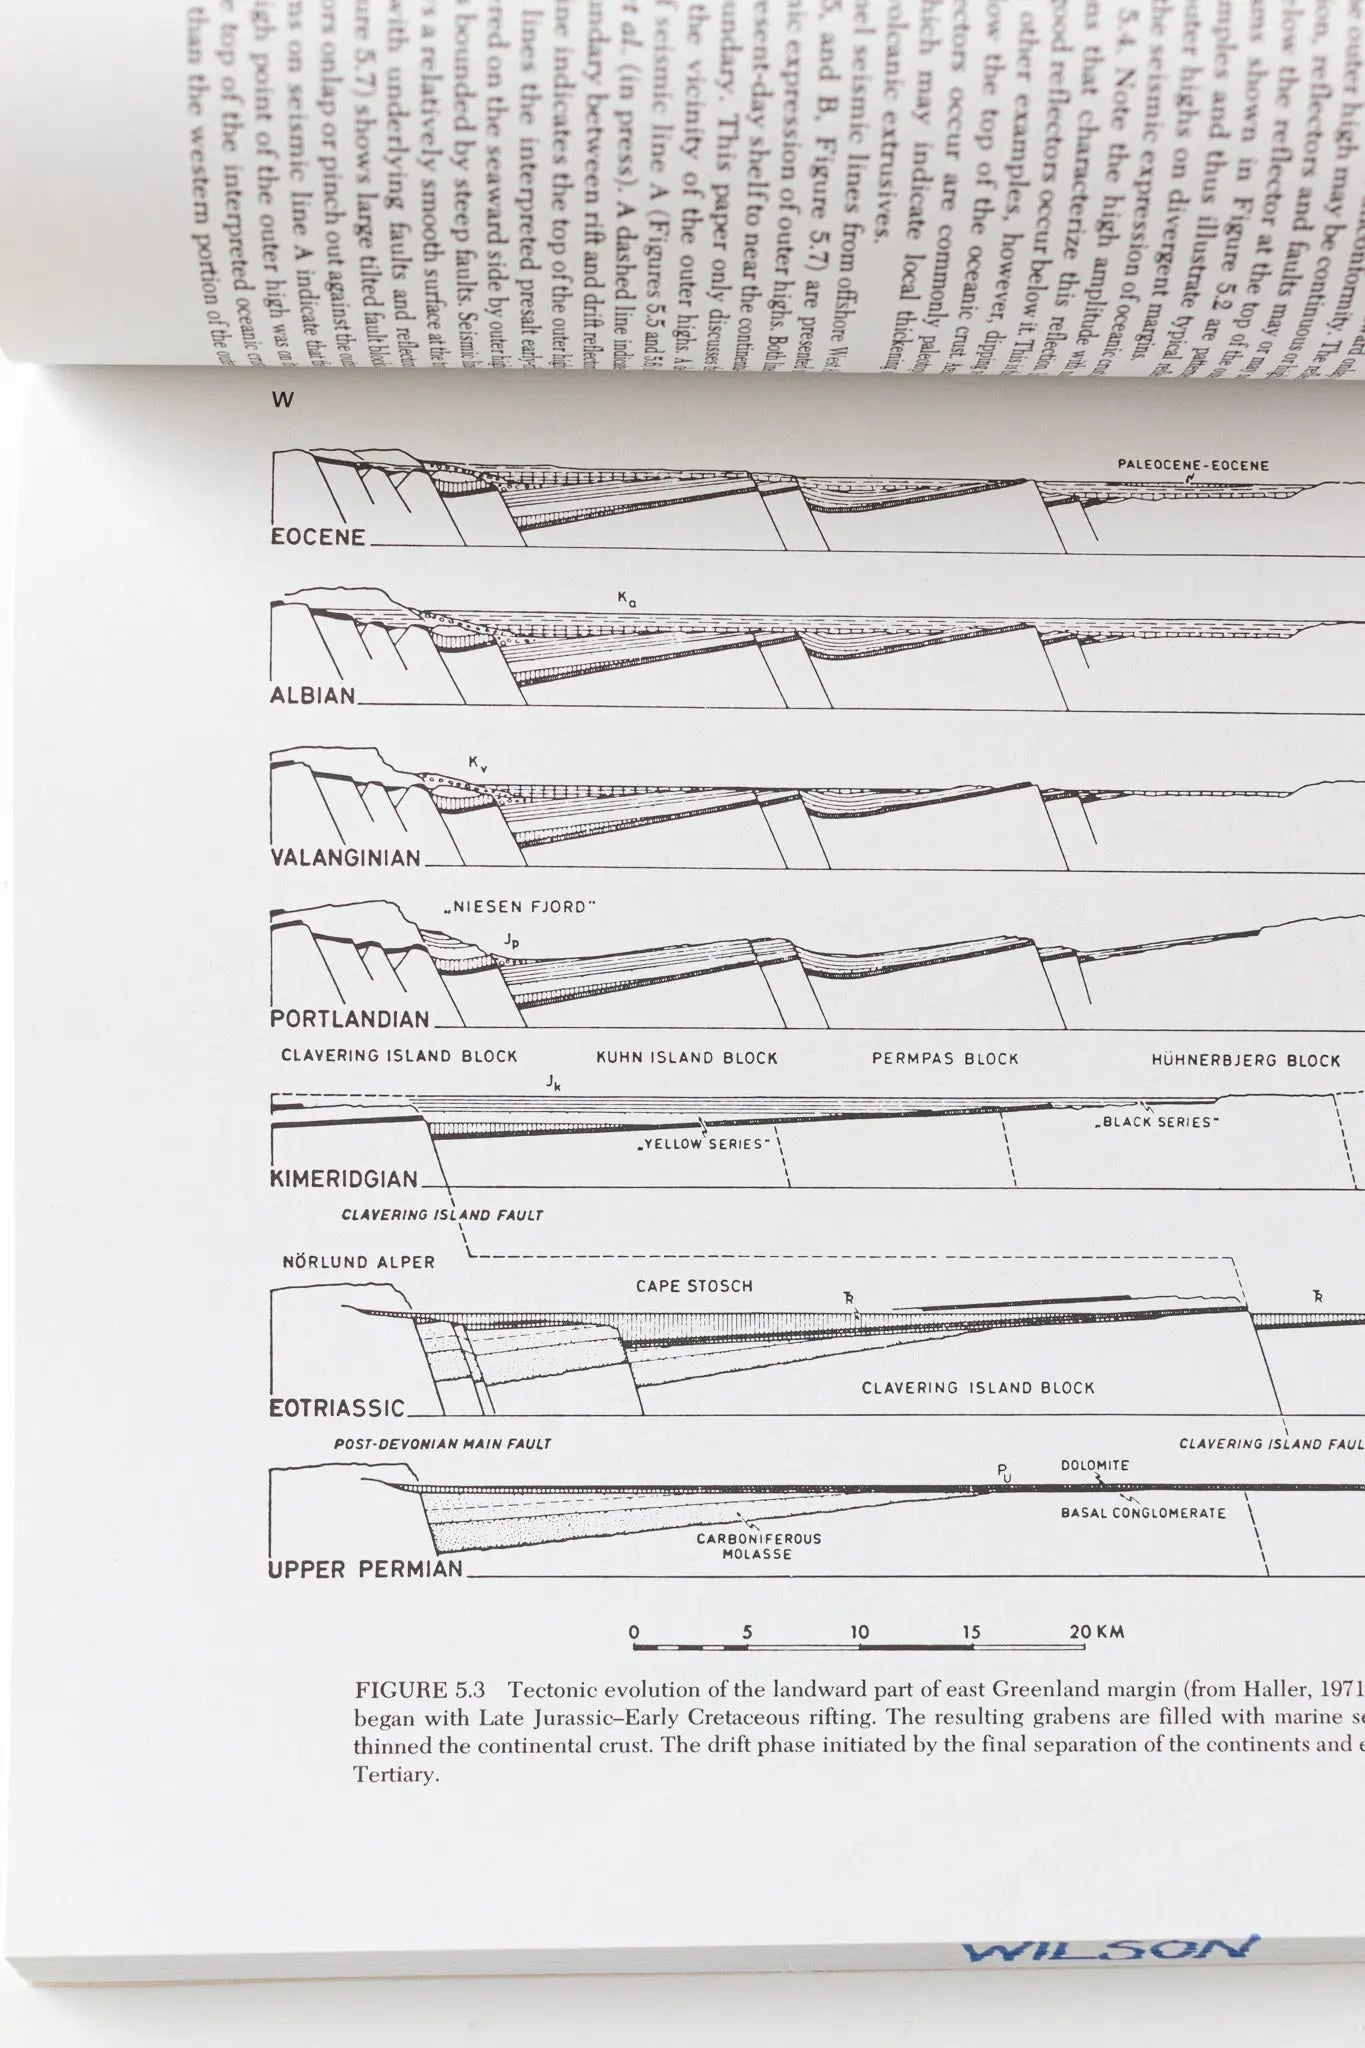 outer high may be
reflectors and faults
below the reflector at the top of the
shown in Figure 5.2 are
and thus illustrate typical
outer highs on divergent margins.
the seismic expression of oceanic
5.4. Note the high amplitude with
that characterize this reflection
good reflectors occur below it. This
other examples, however, dipping
the top of the oceanic crust.
occur are commonly
which may indicate local thickening
volcanic extrusives.
seismic lines from offshore West
5, and B, Figure 5.7) are presented
expression of outer highs. Both
shelf to near the
This paper only
the vicinity of the outer highs.
seismic line A (Figures 5.5 and 5.6
et al. (in press). A dashed line
between rift and drift
indicates the top of the outer
lines the interpreted presalt
on the seaward side by outer
bounded by steep faults. Seismic
a relatively smooth surface at the
with underlying faults and
5.7) shows large tilted fault
onlap or pinch out against the
on seismic line A indicate that
point of the outer high was on
top of the interpreted oceanic
than the western portion of the
W
PALEOCENE-EOCENE
EOCENE
Ka
ALBIAN
Kv
VALANGINIAN
„NIESEN FJORD"
Jp
PORTLANDIAN
CLAVERING ISLAND BLOCK KUHN ISLAND BLOCK PERMPAS BLOCK HÜHNERBJERG BLOCK
Jk
„BLACK SERIES"
„YELLOW SERIES"
KIMERIDGIAN
CLAVERING ISLAND FAULT
NÖRLUND ALPER
CAPE STOSCH TR TR
CLAVERING ISLAND BLOCK
EOTRIASSIC
POST-DEVONIAN MAIN FAULT CLAVERING ISLAND FAUL
PU DOLOMITE
BASAL CONGLOMERATE
CARBONIFEROUS
MOLASSE
UPPER PERMIAN
0 5 10 15 20 KM
FIGURE 5.3 Tectonic evolution of the landward part of east Greenland margin (from Haller, 1971
began with Late Jurassic–Early Cretaceous rifting. The resulting grabens are filled with marine se
thinned the continental crust. The drift phase initiated by the final separation of the continents and e
Tertiary.
WILSON